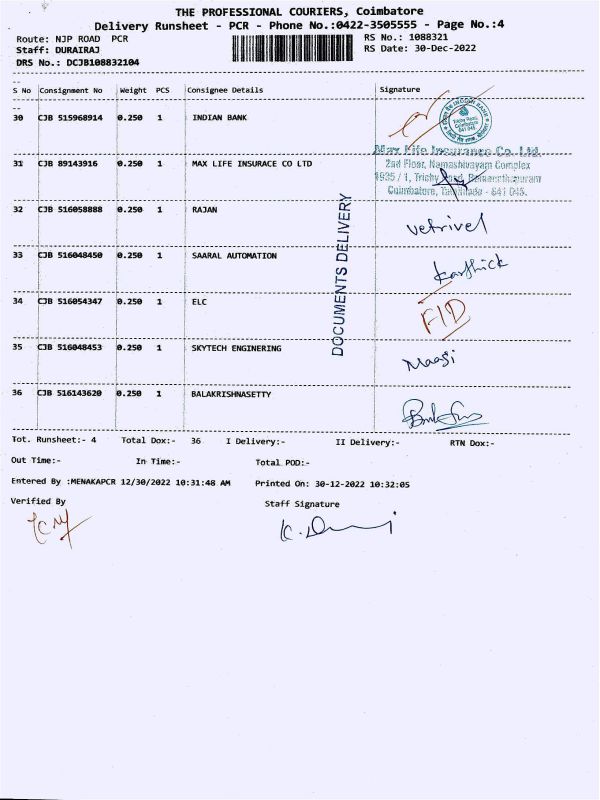 THE PROFESSIONAL COURIERS, Coimbatore
Delivery Runsheet - PCR - Phone No.:0422-3505555 - Page No.:4
Route: NJP ROAD PCR
RS No.: 1088321
Staff: DURAIRAJ
RS Date: 30-Dec-2022
DRS No.: DCJB108832104
S No Consignment No Weight PCS Consignee Details Signature
30 CJB 515968914 0.250 1 INDIAN BANK
Max Life Insurance Co. Ltd.
31 CJB 89143916 0.250 1 MAX LIFE INSURACE CO LTD
2nd Floor, Namashivayam Complex
1935 / 1, Trichy Road, Ramanathapuram
Coimbatore, Tamilnadu - 641 045.
32 CJB 516058888 0.250 1 RAJAN
vetrivel
33 CJB 516048450 0.250 1 SAARAL AUTOMATION
Karthick
34 CJB 516054347 0.250 1 ELC
FID
35 CJB 516048453 0.250 1 SKYTECH ENGINERING
Maasi
36 CJB 516143620 0.250 1 BALAKRISHNASETTY
DOCUMENTS DELIVERY
Tot. Runsheet:- 4 Total Dox:- 36 I Delivery:- II Delivery:- RTN Dox:-
Out Time:- In Time:- Total POD:-
Entered By :MENAKAPCR 12/30/2022 10:31:48 AM Printed On: 30-12-2022 10:32:05
Verified By Staff Signature